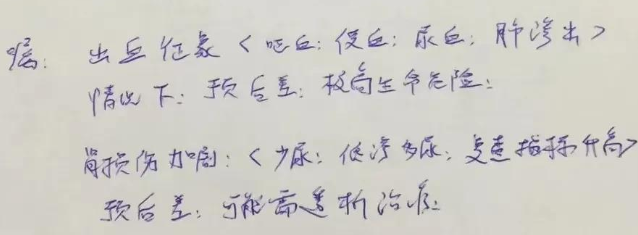 嘱: 出血征象<呕血: 便血; 尿血; 肺渗出>
情况下: 预后差; 极高生命危险:
肾损伤加剧: <少尿: 低渗多尿; 复查指标升高>
预后差; 可能需透析治疗: